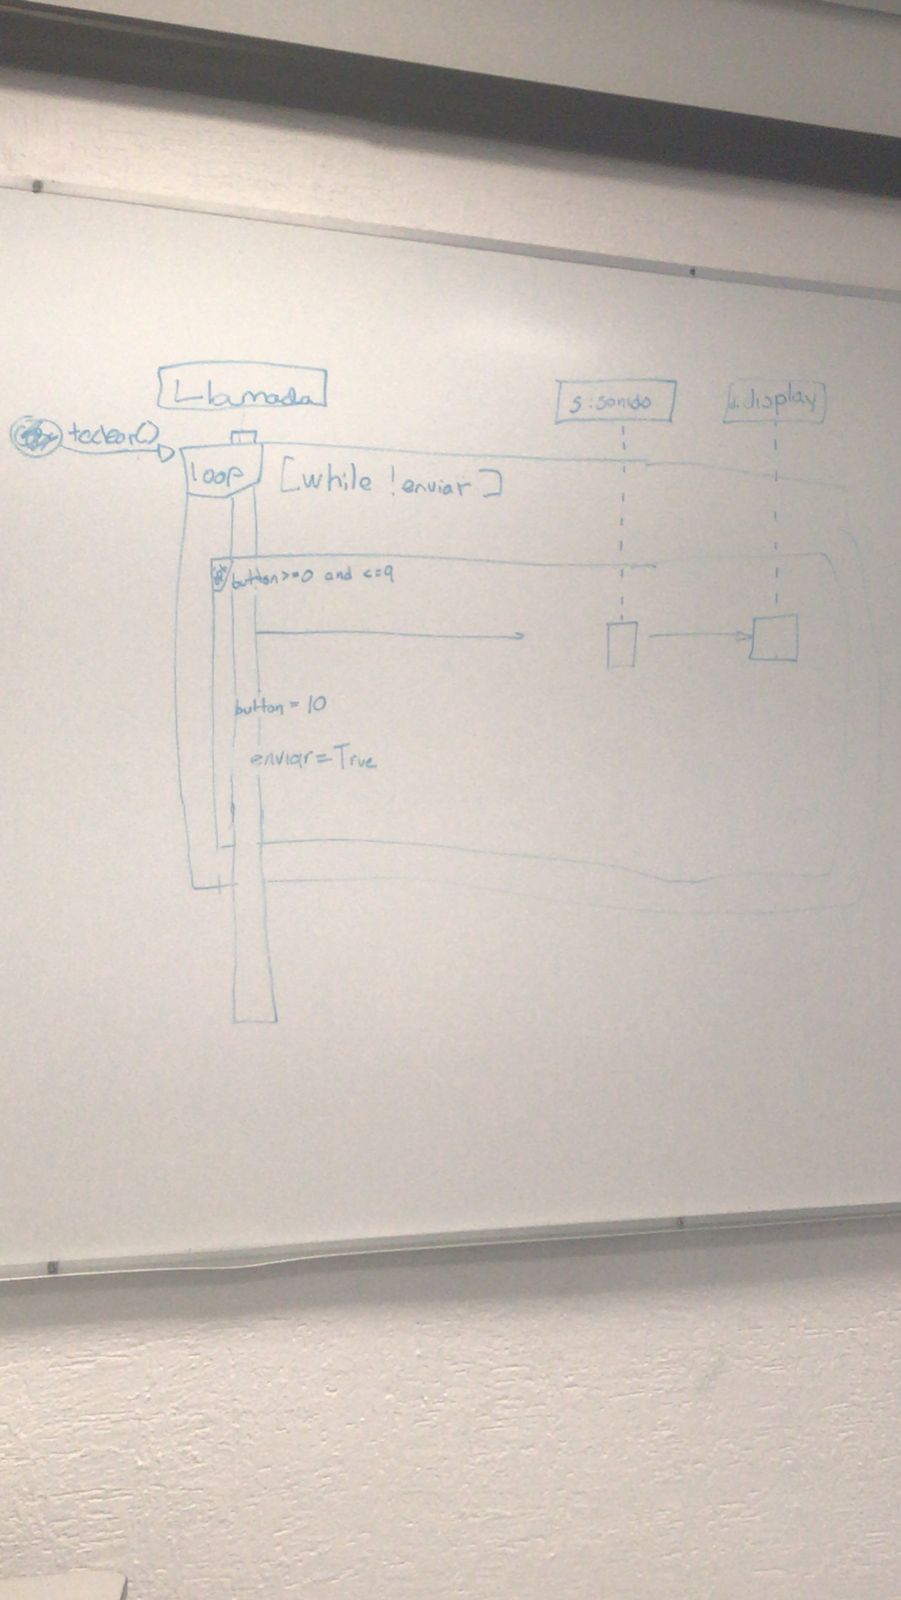 Llamada
s:sonido
d:display
teclear()
loop
[while !enviar]
button>=0 and <=9
button = 10
enviar=True